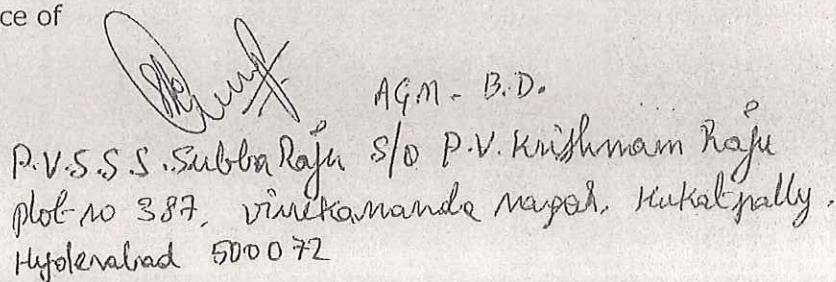 ce of
AGM - B.D.
P.V.S.S.S. Subba Raju S/o P.V. Krishnam Raju
plot no 387, vivekananda nagar, Kukatpally,
Hyderabad 500072